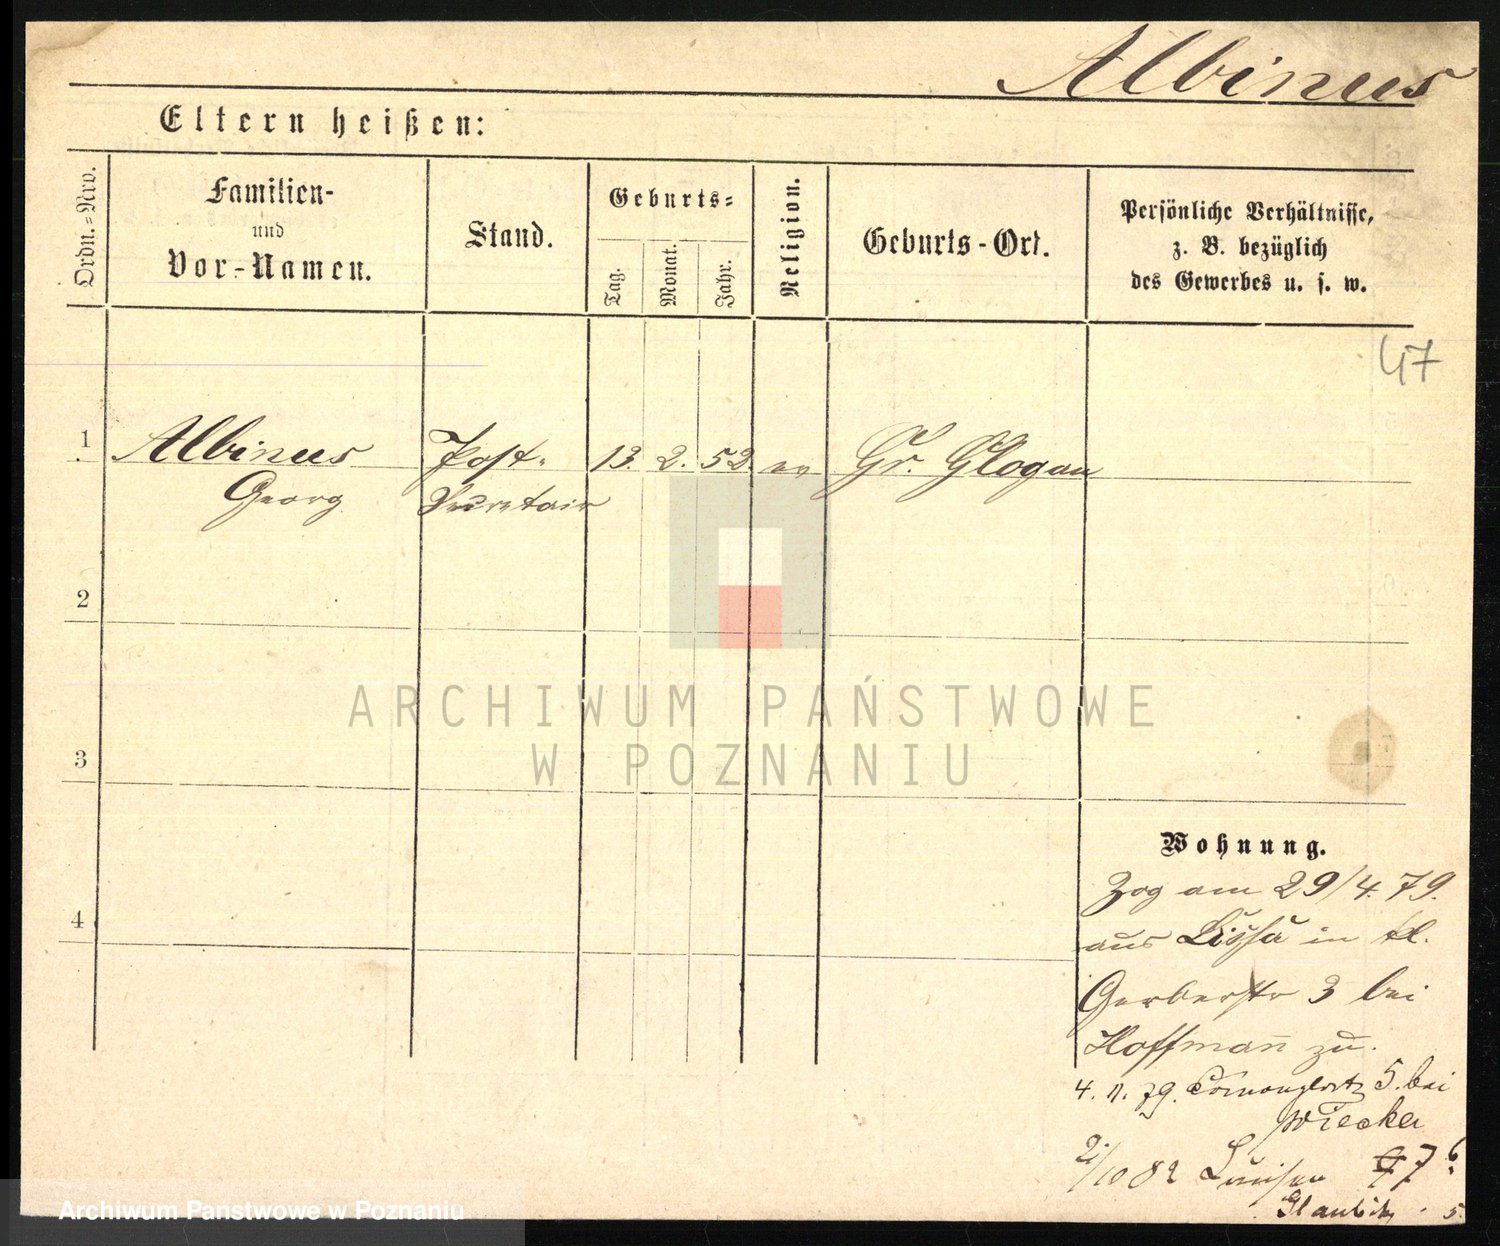 Albinus
Eltern heißen:
Ordn.=Nro.
Familien-
und
Vor-Namen.
Stand.
Geburts=
Tag.
Monat.
Jahr.
Religion.
Geburts-Ort.
Persönliche Verhältnisse,
z. B. bezüglich
des Gewerbes u. s. w.
47
1
Albinus
Georg
Post-
Secretair
13. 2. 52. ev
Gr. Glogau
2
3
4
ARCHIWUM PAŃSTWOWE
W POZNANIU
Wohnung.
Zog am 29/4. 79.
aus Lissa in kl.
Gerberstr 3 bei
Hoffmann zu.
4. 11. 79. 5. bei
Wiecker
2/10 82 Luisen 7
Glaubitz
Archiwum Państwowe w Poznaniu